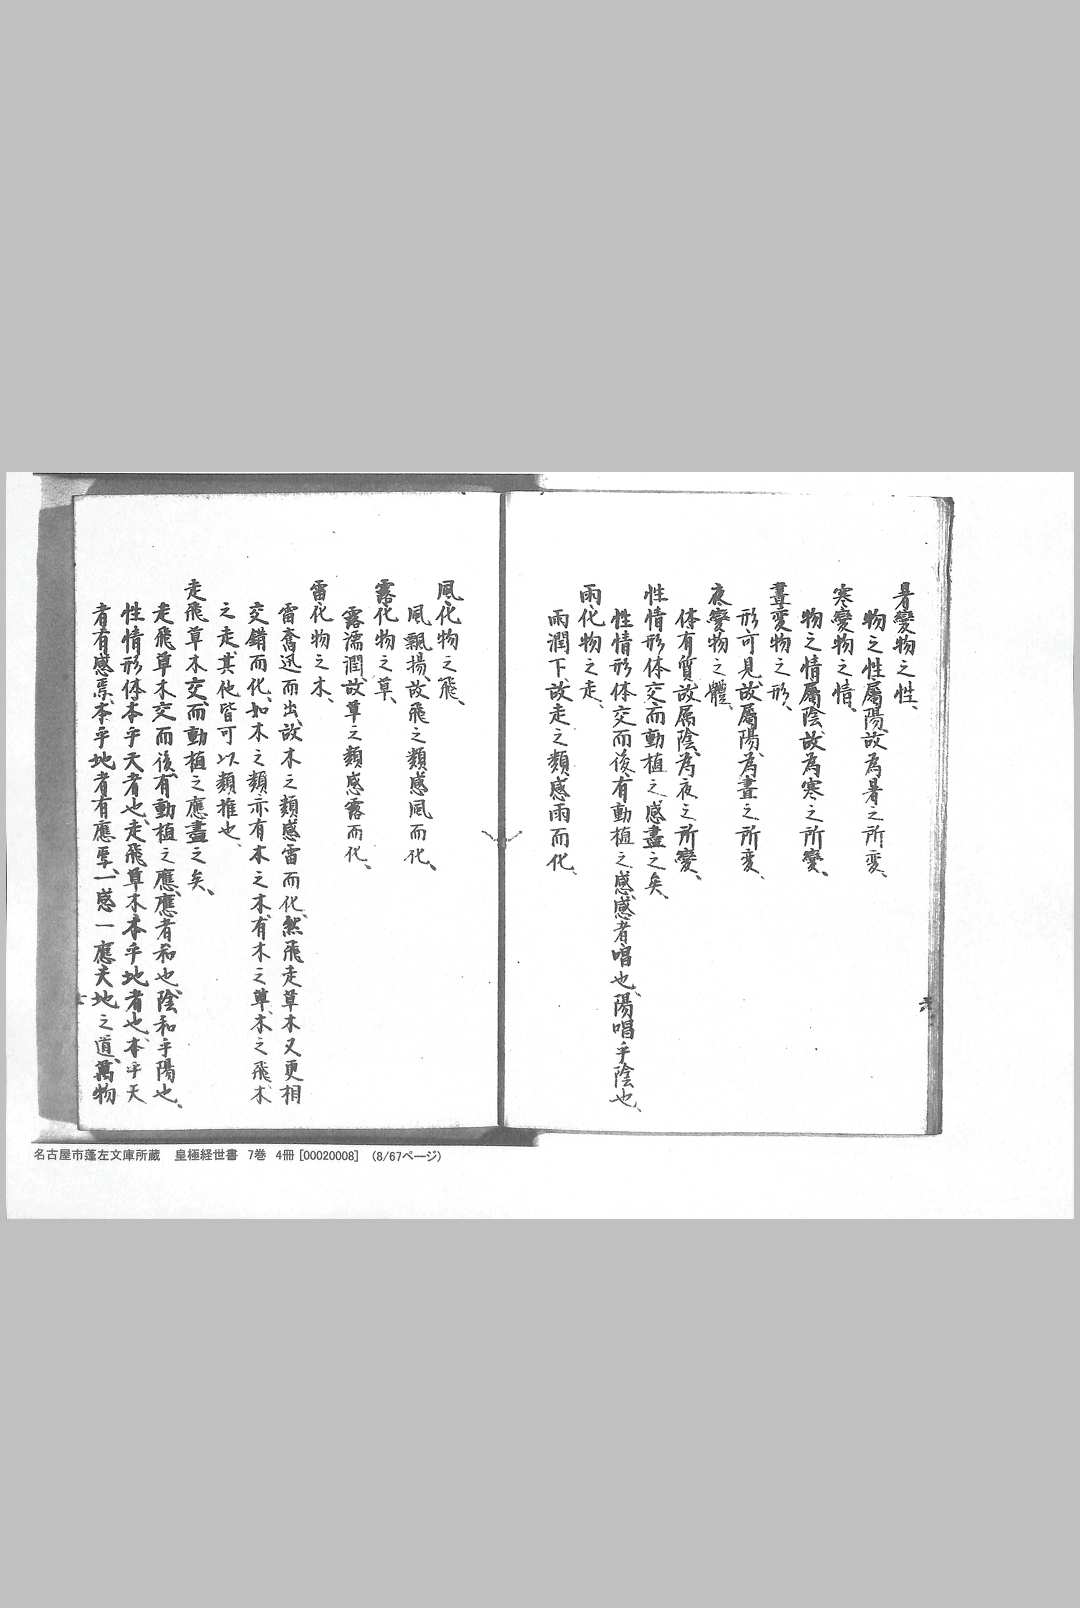 暑變物之性、
物之性屬陽、故為暑之所変、
寒變物之情、
物之情屬陰、故為寒之所變、
晝変物之形、
形可見、故屬陽、為晝之所変、
夜變物之體、
体有質、故属陰、為夜之所變、
性情形体交而動植之感盡之矣、
性情形体交而後有動植之感、感者唱也、陽唱乎陰也、
雨化物之走、
雨潤下、故走之類感雨而化、
六
風化物之飛、
風飄揚、故飛之類感風而化、
露化物之草、
露濡潤、故草之類感露而化、
雷化物之木、
雷奮迅而出、故木之類感雷而化、然飛走草木又更相
交錯而化、如木之類亦有木之木、有木之草、木之飛、木
之走、其他皆可以類推也、
走飛草木交而動植之應盡之矣、
走飛草木交而後有動植之應、應者和也、陰和乎陽也、
性情形体本乎天者也、走飛草木本乎地者也、本乎天
者有感焉、本乎地者有應焉、一感一應天地之道、萬物
名古屋市蓬左文庫所蔵 皇極経世書 7巻 4冊 [00020008] (8/67ページ)